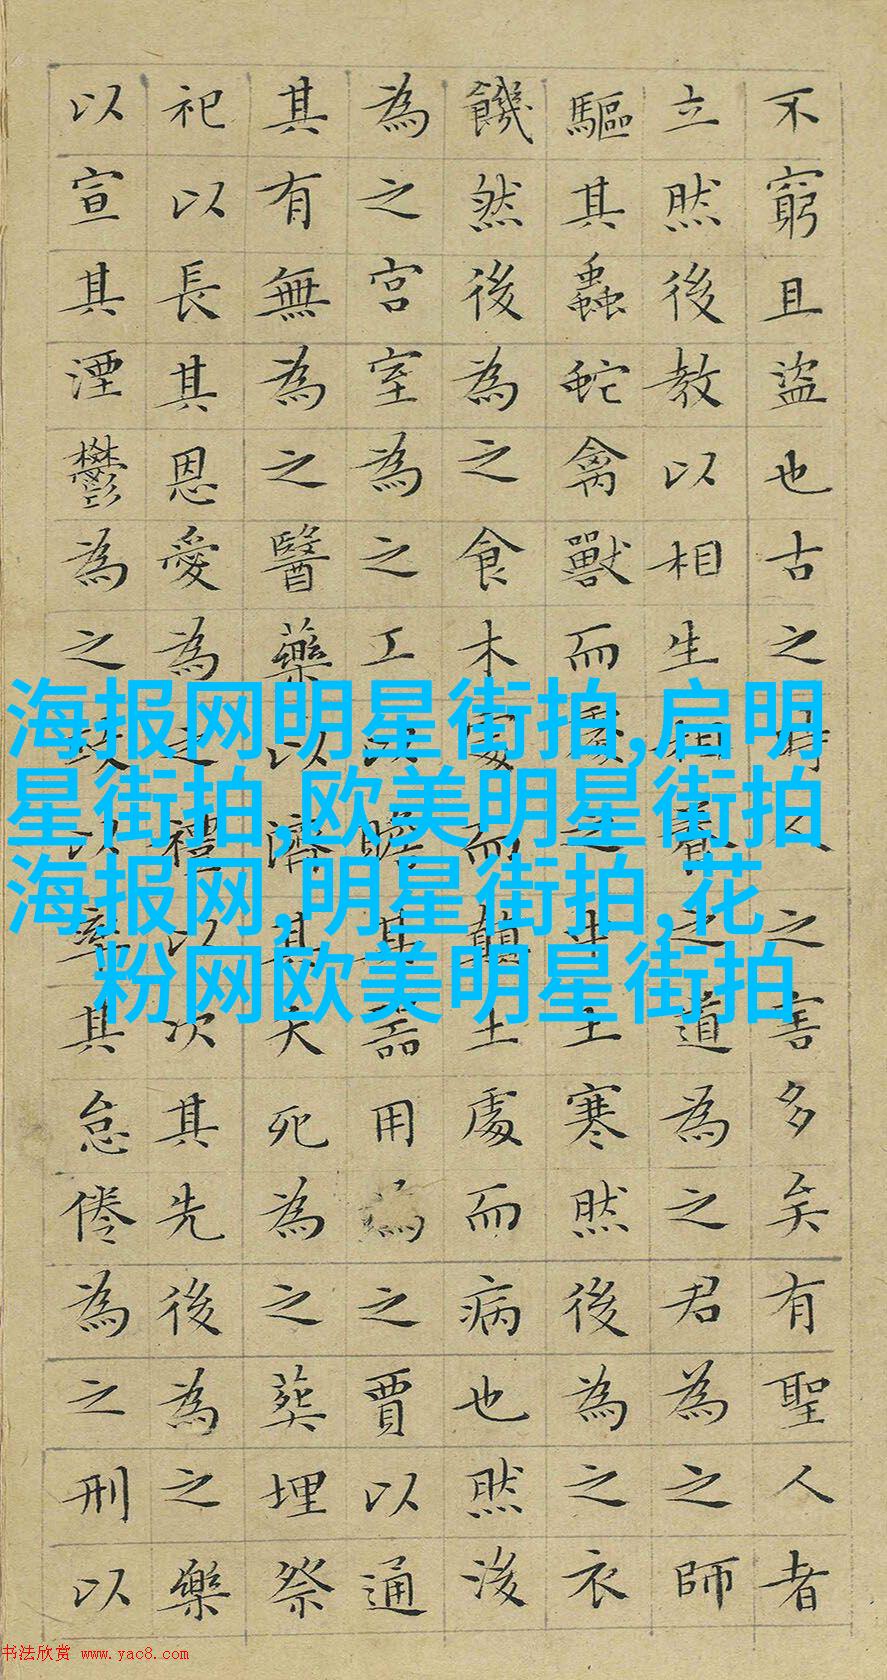 不窮且盜也古之時人之害多矣有聖人者
立然後教以相生相養之道為之君為之師
驅其蟲蛇禽獸而處之中土寒然後為之衣
饑然後為之食木處而顛土處而病也然後
為之宮室為之工以贍其器用為之賈以通
其有無為之醫藥以濟其夭死為之葬埋祭
祀以長其恩愛為之禮以次其先後為之樂
以宣其湮鬱為之政以率其怠倦為之刑以
海报网明星街拍,启明
星街拍,欧美明星街拍
海报网,明星街拍,花
粉网欧美明星街拍
书法欣赏 www.yac8.com